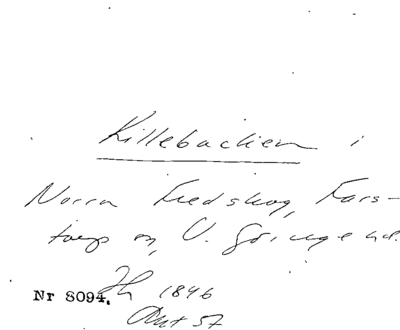 Killebacken i
Norra Fredskog, Fars-
torp sn, V. Göinge hd.
Nr 8094. 1846